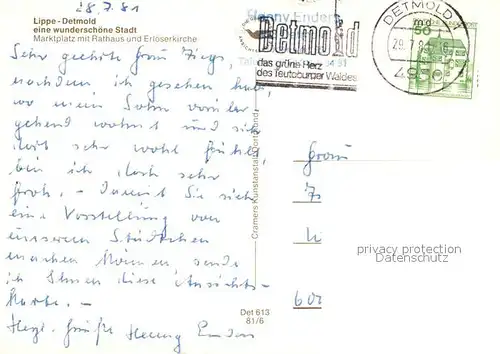 28.7.81
Lippe - Detmold
eine wunderschöne Stadt
Marktplatz mit Rathaus und Erlöserkirche
Sehr geehrte Frau
nachdem ich gesehen habe,
wo mein Sohn vorüber-
gehend wohnt und sich
dort sehr wohl fühlt,
bin ich doch sehr
froh. - Damit Sie sich
eine Vorstellung von
unserem Städtchen
machen können, sende
ich Ihnen diese Ansichts-
karte. -
Herzl. Grüße Henny Enders
Cramers Kunstanstalt Dortmund
Det 613
81/6
Henny Enders
Detmold
das grüne Herz
des Teutoburger Waldes
DETMOLD 1
md
29.7.81
4930
50
Frau
privacy protection
©AnsichtskartenDE